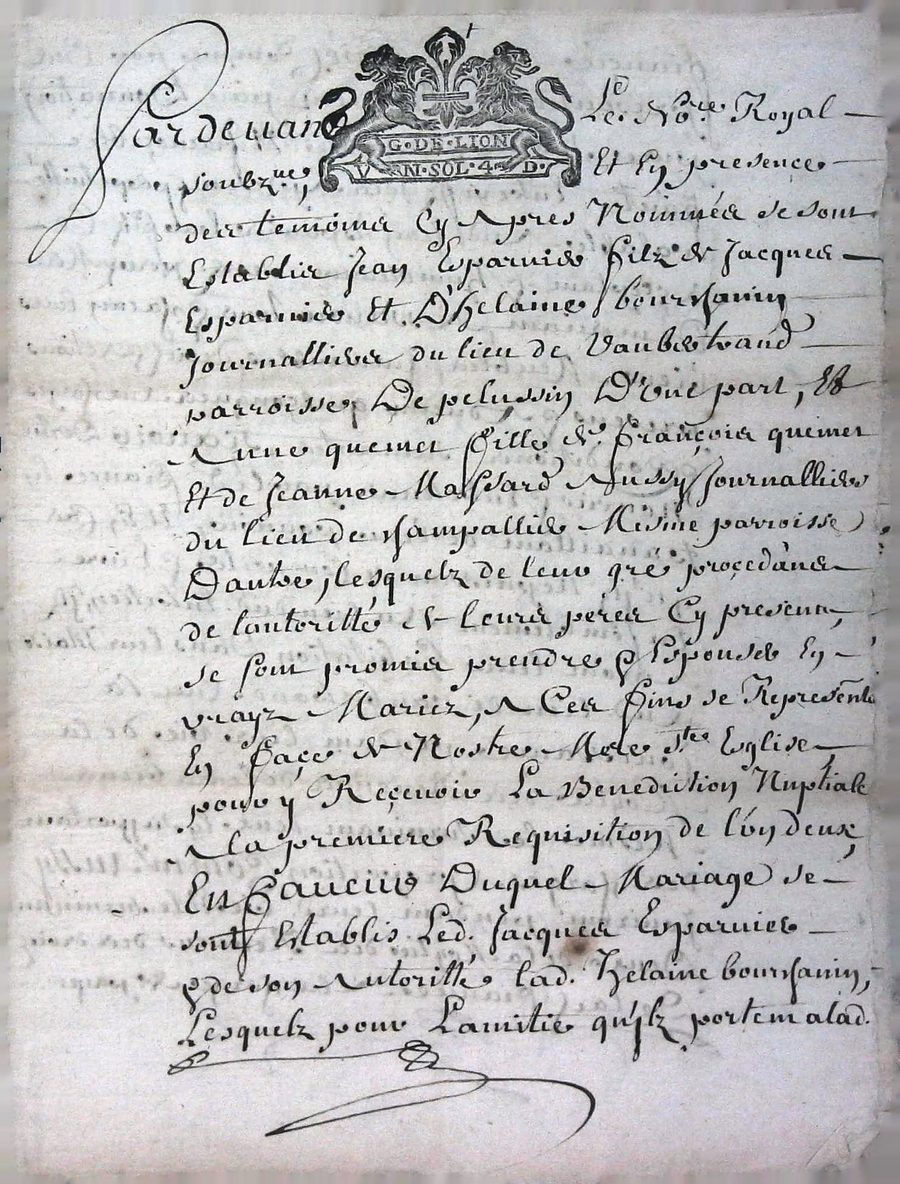 G·DE·LION
VN·SOL·4·D·
Pardevant Le No.re Royal
soubzne, Et En presence
des temoins Cy Apres Nommés se sont
Establis Jean Esparvier filz de Jacques
Esparvier Et D'helaine boursanin
Journalliers du lieu de Vaubertrand
parroisse De pelussin D'une part, Et
Anne quemet fille de françois quemet
Et de Jeanne Massard Aussy Journallier
du lieu de Mesme parroisse
Dautre, lesquelz de leur gré proçedans
de lautoritté de leurs péres Cy presens,
se sont promis prendre & Espouser En
vrayz Mariez, A Ces fins se Represente
En façe de Nostre Mere s.te Eglise
pour y Reçevoir La Benediction Nuptiale
A la premiere Requisition de l'un deux,
En faveur Duquel Mariage se
sont Establis Led. Jacques Esparvier
& de son Autoritté lad. helaine boursanin,
Lesquelz pour Lamitie qu'ilz portem alad.